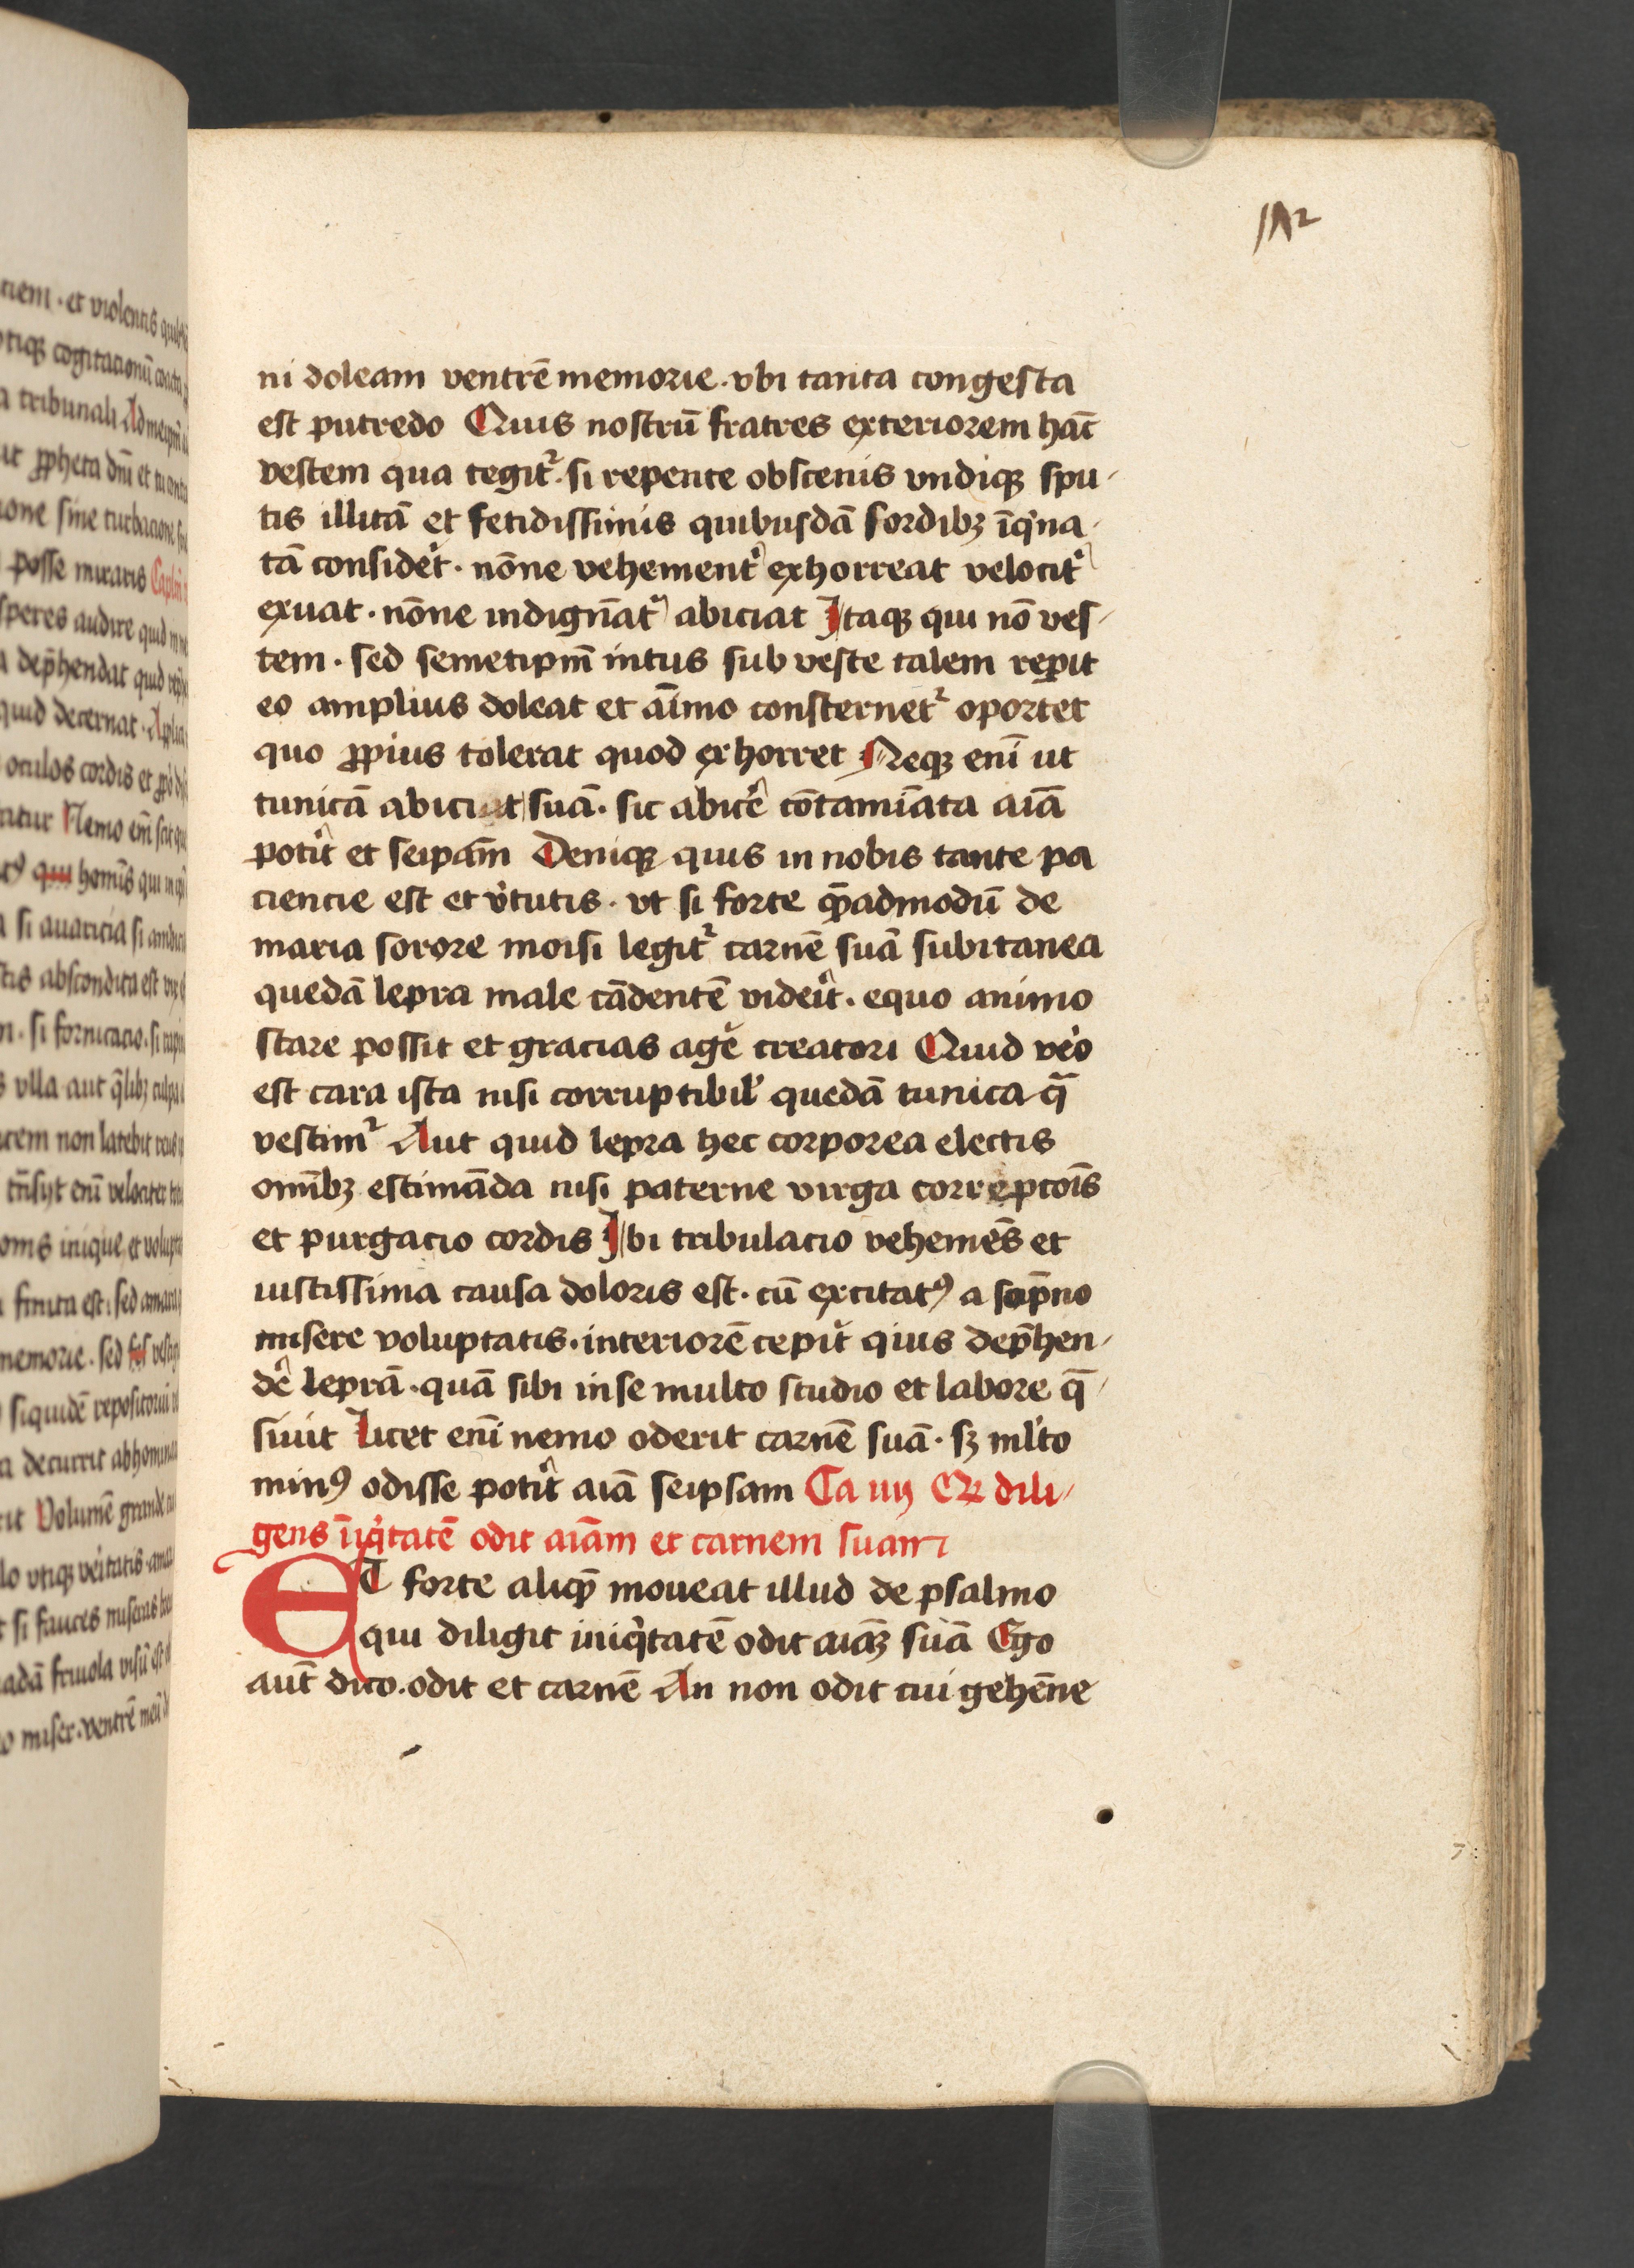 ni doleam ventrē memorie · vbi tanta congesta
est putredo Quis nostrū fratres exteriorem hāc
vestem qua tegit᷑ · si repente obscenis vndiqꝫ spu-
tis illitā et fetidissimis quibusdā sordibꝫ īq̇na-
tā consideͥt · nōne vehement᷑ exhorreat velocit᷑
exuat · nōne indignāt᷑ abiciat Itaqꝫ qui nō ves-
tem · sed semetipm̄ intus sub veste talem reꝑit
eo amplius doleat et aīmo consternet᷑ oportet
quo ꝓpius tolerat quod exhorret Neqꝫ enī ut
tunicā abiciat suā · sic abicē᷑ cōtamīata aīā
potīt᷑ et seipām Deniqꝫ quis in nobis tante pa
ciencie est et v̓tutis · vt si forte q̄madmodū de
maria sorore moisi legit᷑ carnē suā subitanea
quedā lepra male cādentē videīt᷑ · equo animo
stare possit et gracias age᷑ creatori Quid ve᷑o
est cara ista nisi corruptibil̓ quedā tunica q̄
vestim᷑ Aut quid lepra hec corporea electis
om̄ibꝫ estimāda nisi paterne virga correpcōis
et purgacio cordis Ibi tribulacio vehemēs et
iustissima causa doloris est · cū excitatꝰ a sop̄no
misere voluptatis · interiorē cepit᷑ qius dep̄hen-
de᷑ leprā · quā sibi in se multo studio et labore q̄-
siuit Licet enī nemo oderit carnē suā · sꝫ ml̓to
minꝰ odisse potīt᷑ aīā seipsam Ca iiij Qꝫ dili-
gens īiq̇tatē odit aīam et carnem suam
ET forte aliqꝫ moueat illud de psalmo
qui diligit iniq̇tatē odit aīaꝫ suā Ego
aut̄ dico · odit et carnē An non odit cui gehēne